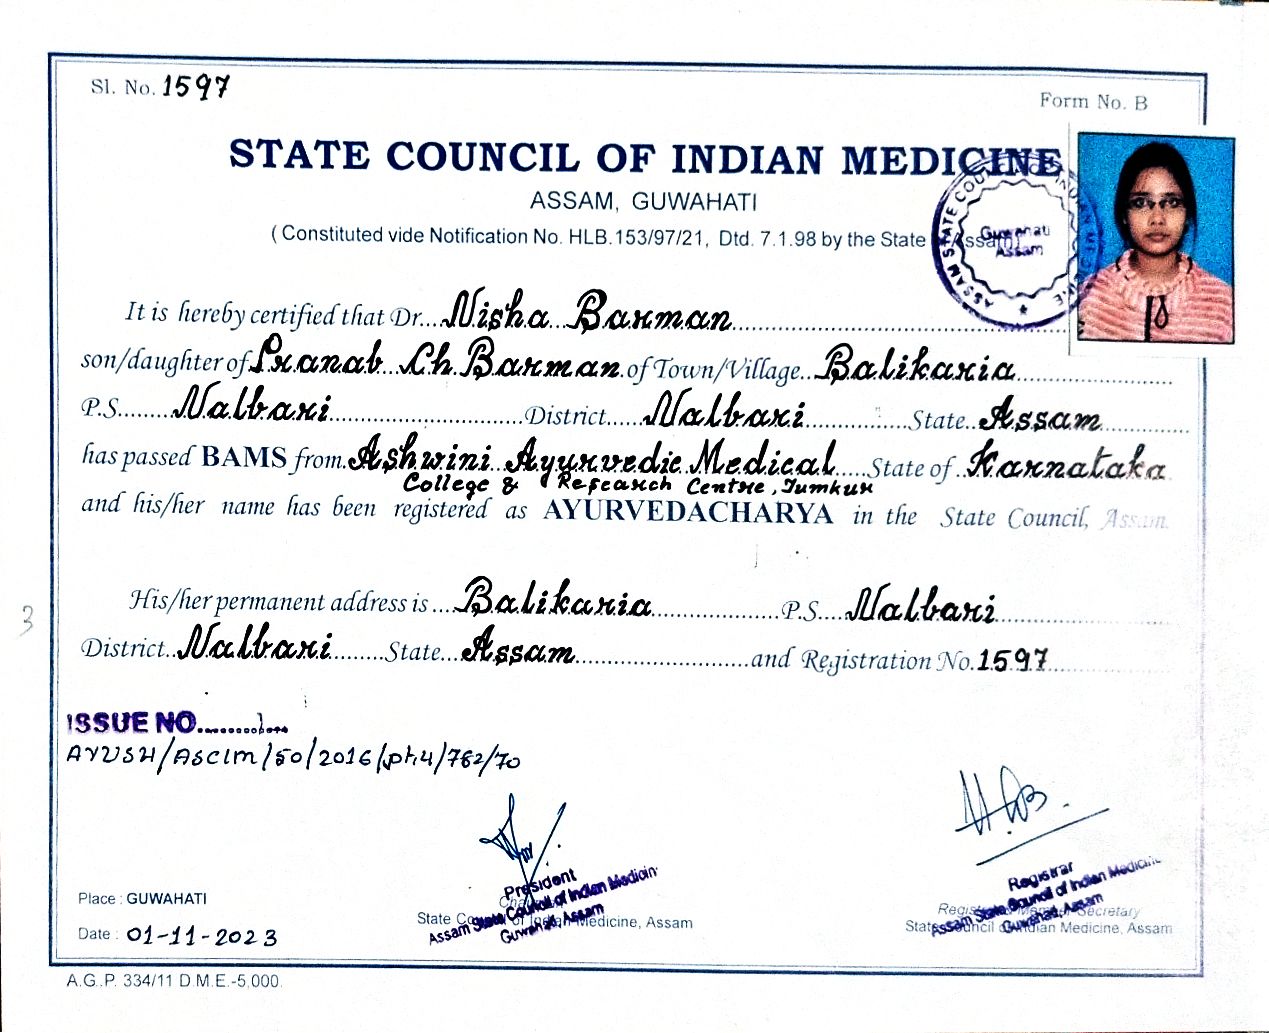 Sl. No. 1597
Form No. B
STATE COUNCIL OF INDIAN MEDICINE
ASSAM, GUWAHATI
( Constituted vide Notification No. HLB.153/97/21, Dtd. 7.1.98 by the State Assam)
ASSAM STATE COUNCIL OF INDIAN MEDICINE
Guwahati
Assam
It is hereby certified that Dr....Nisha Barman
son/daughter of Pranab Ch. Barman of Town/Village...Balikaria
P.S........Nalbari........District......Nalbari........State..Assam
has passed BAMS from Ashwini Ayurvedic Medical.....State of Karnataka
College & Research Centre, Tumkur
and his/her name has been registered as AYURVEDACHARYA in the State Council, Assam.
His/her permanent address is....Balikaria........P.S....Nalbari
District..Nalbari........State...Assam........and Registration No. 1597
3
ISSUE NO.........1....
AYUSH/ASCIM/50/2016/pt.4/782/70
President
Assam State Council of Indian Medicin
Guwahati, Assam
State Council of Indian Medicine, Assam
Registrar
Assam State Council of Indian Medicine
Guwahati, Assam
Member Secretary
State Council of Indian Medicine, Assam
Place : GUWAHATI
Date : 01-11-2023
A.G..P. 334/11 D.M.E.-5,000.